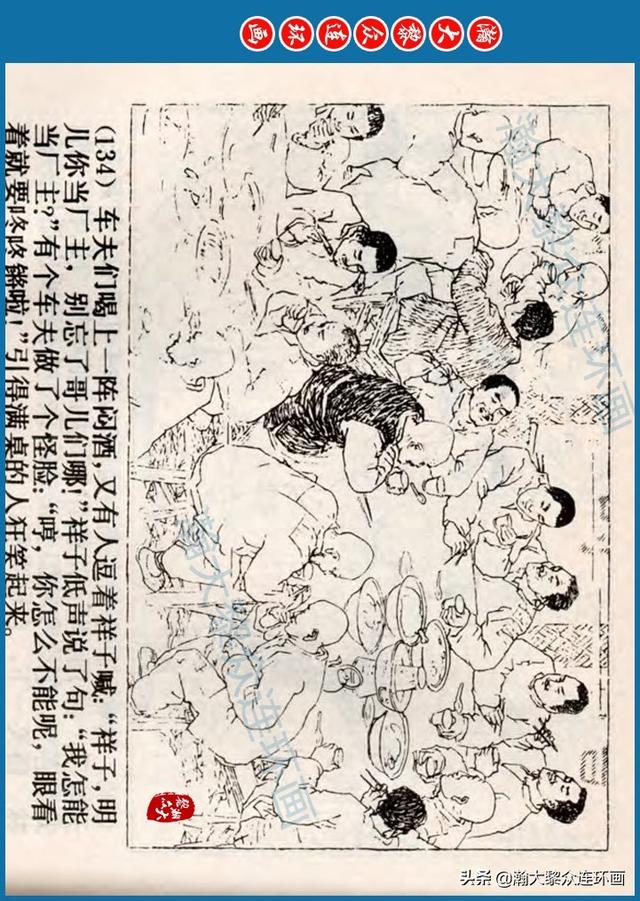 瀚大黎众连环画
(134) 车夫们喝上一阵闷酒，又有人逗着祥子喊：“祥子，明
儿你当厂主，别忘了哥儿们哪！”祥子低声说了句：“我怎能
当厂主？”有个车夫做了个怪脸：“哼，你怎么不能呢，眼看
着就要咚咚锵啦！”引得满桌的人狂笑起来。
瀚大黎众连环画
瀚大黎众连环画
头条 @瀚大黎众连环画